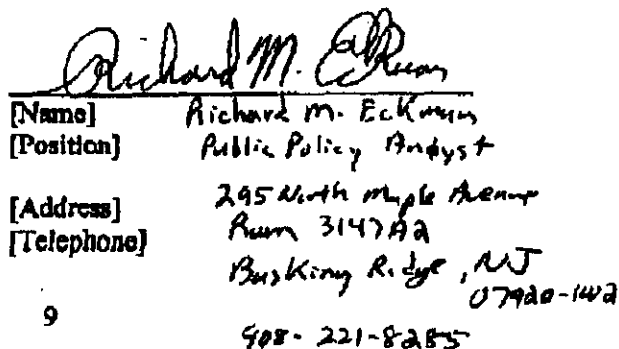 Richard M. Eckman
[Name] Richard M. Eckman
[Position] Public Policy Analyst
[Address] 295 North Maple Avenue
[Telephone] Room 3147A2
Basking Ridge, NJ
07920-1002
9
908-221-8285